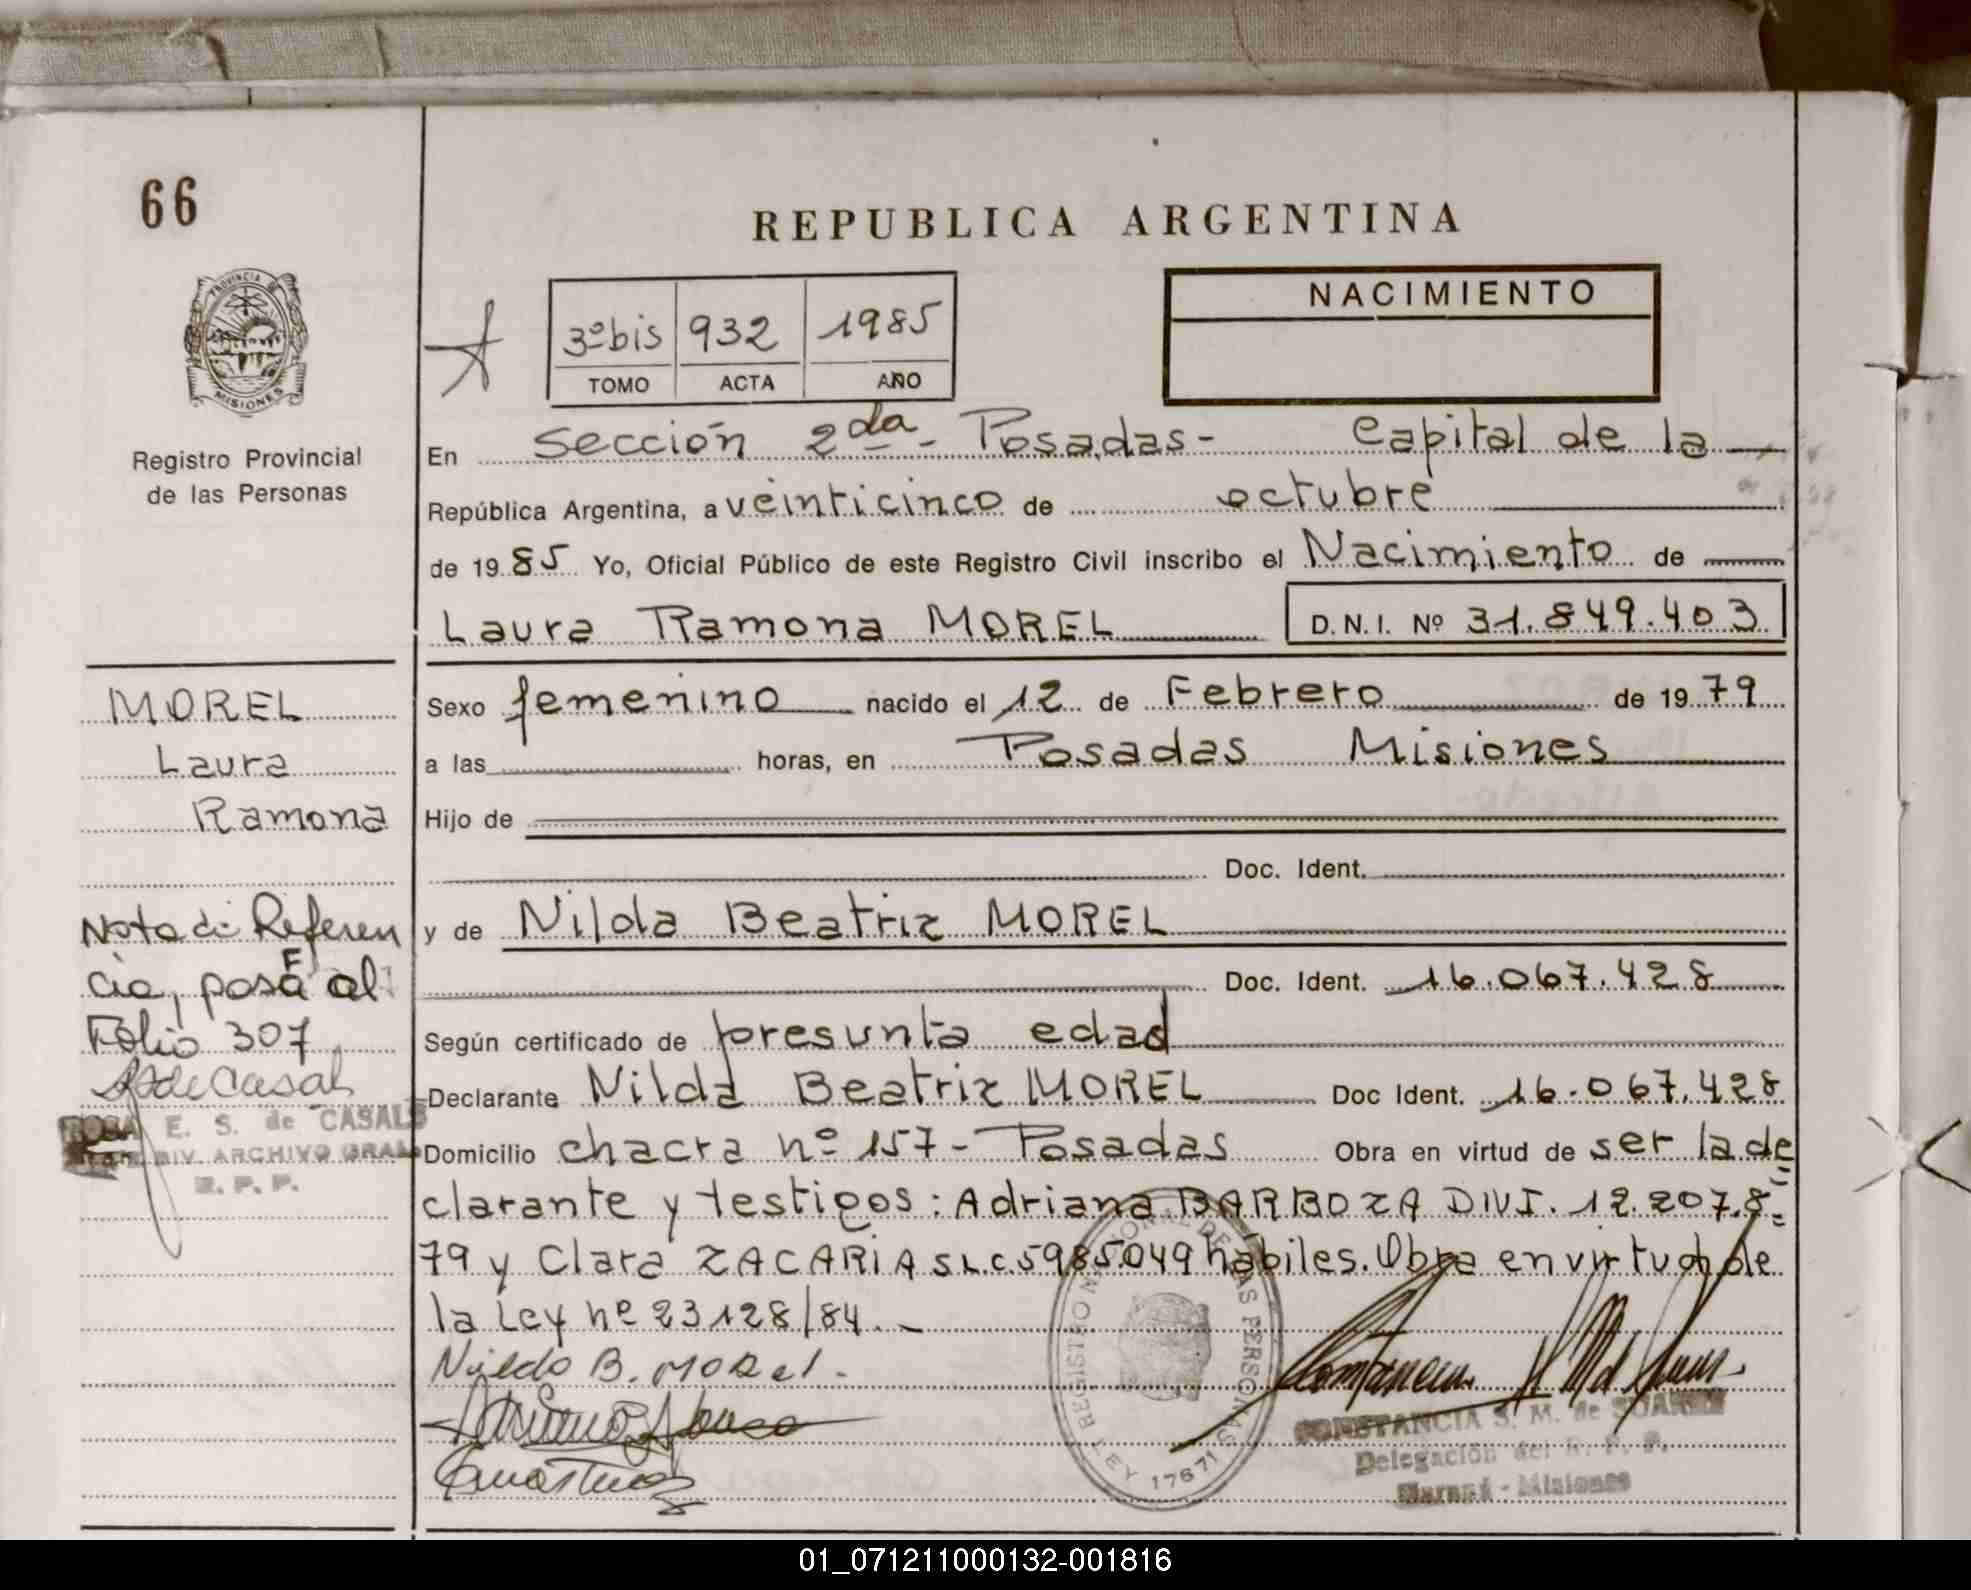 66
REPUBLICA ARGENTINA
PROVINCIA DE
MISIONES
3º bis 932 1985
TOMO ACTA AÑO
NACIMIENTO
Registro Provincial
de las Personas
En Sección 2da - Posadas - Capital de la
República Argentina, a veinticinco de octubre
de 1985 Yo, Oficial Público de este Registro Civil inscribo el Nacimiento de
Laura Ramona MOREL D.N.I. Nº 31.849.403
MOREL
Laura
Ramona
Sexo femenino nacido el 12 de Febrero de 1979
a las horas, en Posadas Misiones
Hijo de
Doc. Ident.
y de Nilda Beatriz MOREL
Doc. Ident. 16.067.428
Según certificado de presunta edad
Declarante Nilda Beatriz MOREL Doc Ident. 16.067.428
Domicilio chacra nº 157 - Posadas Obra en virtud de ser la de
clarante y testigos: Adriana BARBOZA DNI. 12.207.8=
79 y Clara ZACARIAS L.C. 5985049 hábiles. Obra en virtud de
la Ley nº 23128/84.-
Nota de Referen
cia, pasa al
Folio 307
de Casal
ROSA E. S. de CASALS
DIV. ARCHIVO GRAL
R. P. P.
Nilda B. Morel.
REGISTRO NACIONAL DE LAS PERSONAS
LEY 17671
CONSTANCIA S. M. de SUAREZ
Delegación del R. P. P.
Misiones
01_071211000132-001816